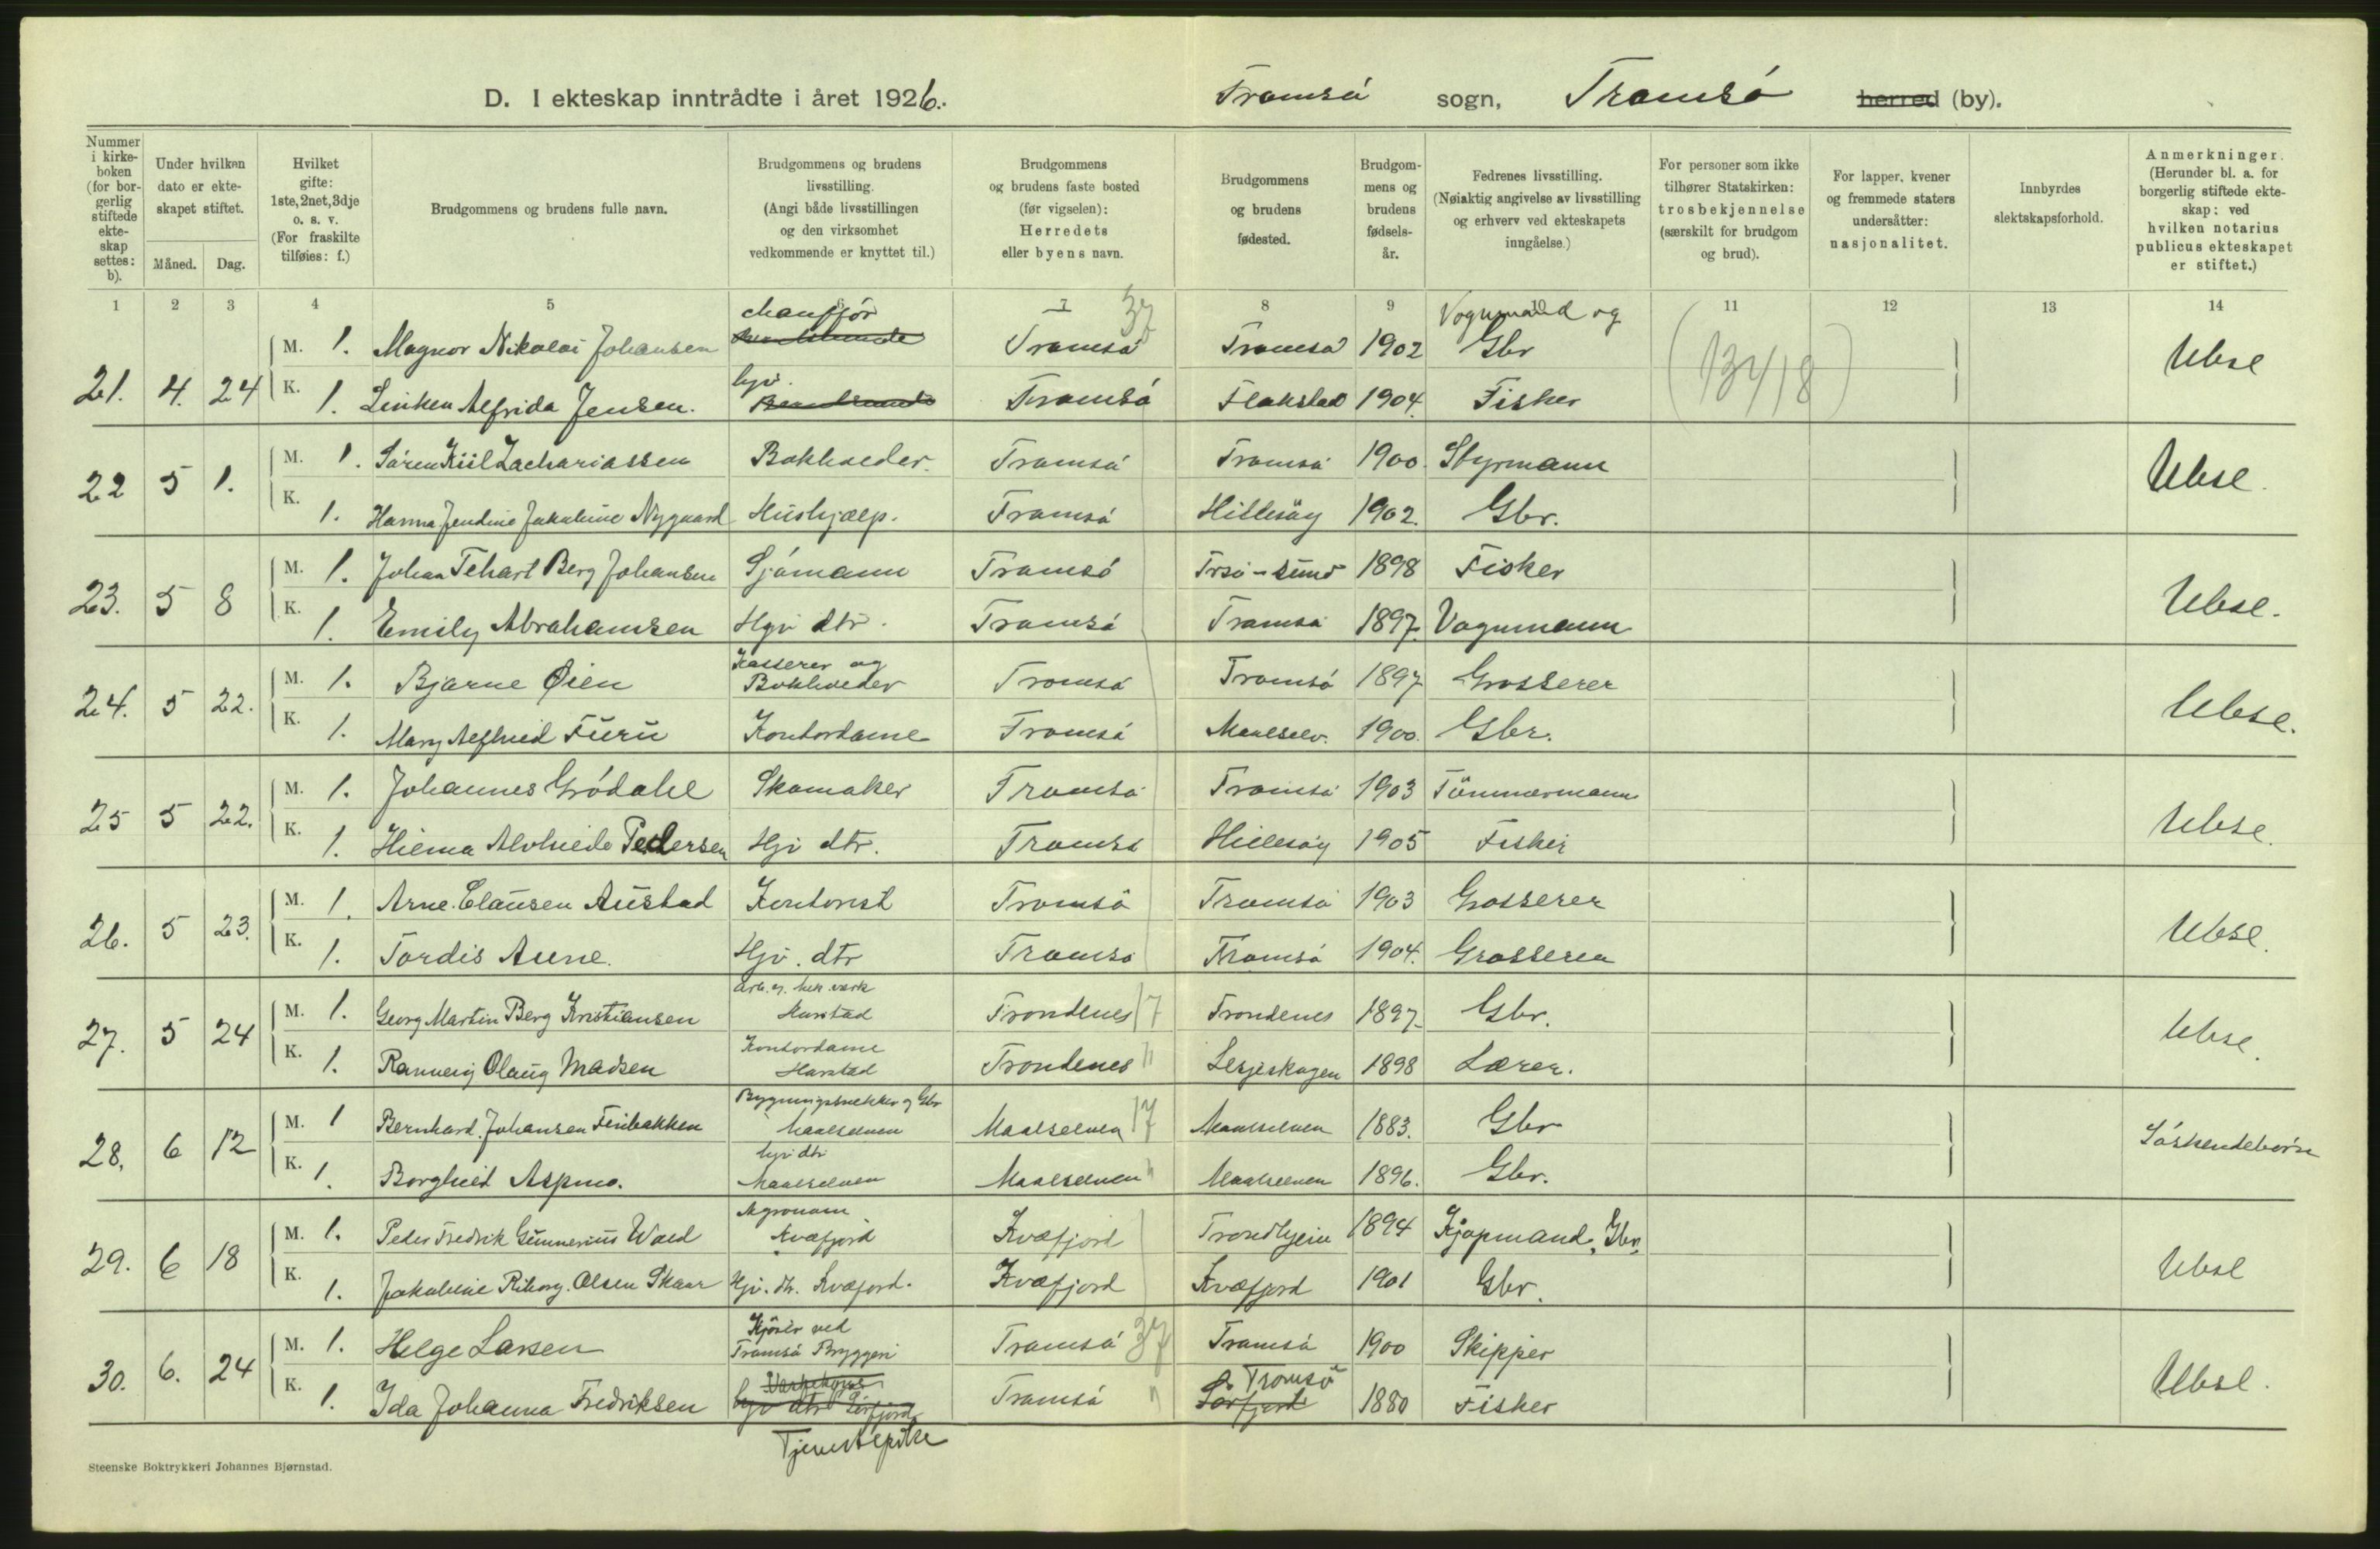 D. I ekteskap inntrådte i året 1926. Tromsö sogn, Tromsö herred (by).
Nummer i kirke-boken (for bor-gerlig stiftede ekte-skap settes: b).
Under hvilken dato er ekte-skapet stiftet.
Måned. Dag.
Hvilket gifte: 1ste, 2net, 3dje o. s. v. (For fraskilte tilføies: f.)
Brudgommens og brudens fulle navn.
Brudgommens og brudens livsstilling. (Angi både livsstillingen og den virksomhet vedkommende er knyttet til.)
Brudgommens og brudens faste bosted (før vigselen): Herredets eller byens navn.
Brudgommens og brudens fødested.
Brudgom-mens og brudens fødsels-år.
Fedrenes livsstilling. (Nøiaktig angivelse av livsstilling og erhverv ved ekteskapets inngåelse.)
For personer som ikke tilhører Statskirken: trosbekjennelse (særskilt for brudgom og brud).
For lapper, kvener og fremmede staters undersåtter: nasjonalitet.
Innbyrdes slektskapsforhold.
Anmerkninger. (Herunder bl. a. for borgerlig stiftede ekte-skap: ved hvilken notarius publicus ekteskapet er stiftet.)
1 2 3 4 5 6 7 8 9 10 11 12 13 14
21. 4. 24 M. 1. Magnor Nikolai Johansen chaufför Tromsö 37 Tromsö 1902 Vognmand og Gbr (13418) Ubsl
K. 1. Linken Alfrida Jensen. hjv. Tromsö Flakstad 1904. Fisker
22 5 1. M. 1. Sören Kiil Zachariassen Bokholder. Tromsö Tromsö 1900. Styrmann Ubsl.
K. 1. Hanna Jendine Jakobine Nygaard Hushjælp. Tromsö Hillesöy 1902. Gbr.
23. 5 8 M. 1. Johan Tehart Berg Johansen Sjömann Tromsö Trsö-sund 1898 Fisker Ubsl.
K. 1. Emily Abrahamsen Hjv dtr. Tromsö Tromsö 1897. Vognmann
24. 5 22. M. 1. Bjarne Øien Kasserer og Bokholder Tromsö Tromsö 1897 Grosserer Ubsl.
K. 1. Mary Alfhild Furu Kontordame Tromsö Maalselv. 1900. Gbr.
25 5 22. M. 1. Johannes Grödahl Skomaker Tromsö Tromsö 1903 Tömmermann Ubsl.
K. 1. Hilma Alvhilde Pedersen Hjv dtr. Tromsö Hillesöy 1905 Fisker
26. 5 23. M. 1. Arne Clausen Austad Kontorist Tromsö Tromsö 1903 Grosserer Ubsl.
K. 1. Tordis Aune. Hjv. dtr Tromsö Tromsö 1904. Grosserer
27. 5 24 M. 1. Georg Martin Berg Kristiansen Arb. v. mek. værk Harstad Trondenes 17 Trondenes 1897. Gbr. Ubsl.
K. 1. Rannveig Olaug Madsen Kontordame Harstad Trondenes " Lesjeskogen 1898 Lærer.
28. 6 12 M. 1 Bernhard Johansen Finbakken Bygningssnekker og Gbr Maalselven Maalselven 17 Maalselven 1883. Gbr Söskendebörn
K. 1. Borghild Aspmo. hjv dtr Maalselven Maalselven " Maalselven 1896. Gbr.
29. 6 18 M. 1. Peder Fredrik Gunnerius Wold Agronom Kvæfjord Kvæfjord Trondhjem 1894 Kjøpmand, Gbr. Ubsl
K. 1. Jakobine Riborg. Olsen Skaar Hjv. dtr. Kvæfjord. Kvæfjord Kvæfjord 1901 Gbr.
30. 6. 24 M. 1. Helge Larsen Kjörer ved Tromsö Bryggeri Tromsö 37 Tromsö 1900 Skipper Ubsl.
K. 1. Ida Johanna Fredriksen hjv dtr Sörfjord Tromsö " Tromsö Sörfjord 1880 Fisker
Tjenestepike
Steenske Boktrykkeri Johannes Bjørnstad.